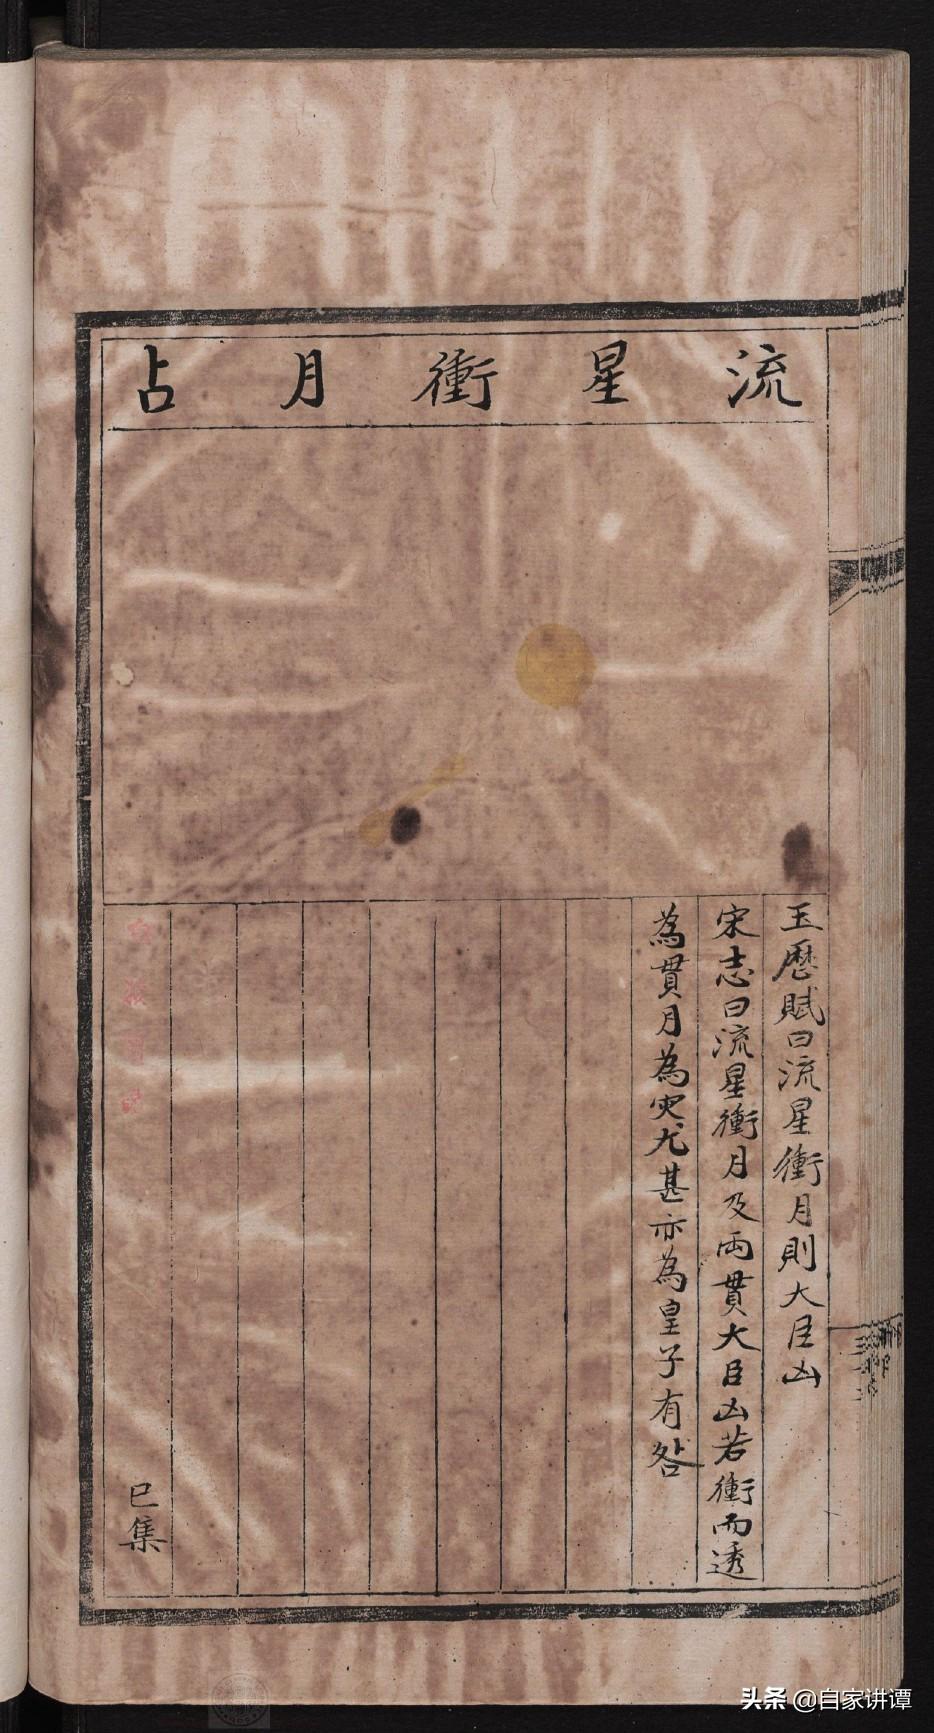 流星衝月占
玉曆賦曰流星衝月則大臣凶
宋志曰流星衝月及兩貫大臣凶若衝而透
為貫月為灾尤甚亦為皇子有咎
巳集
头条 @自家讲谭